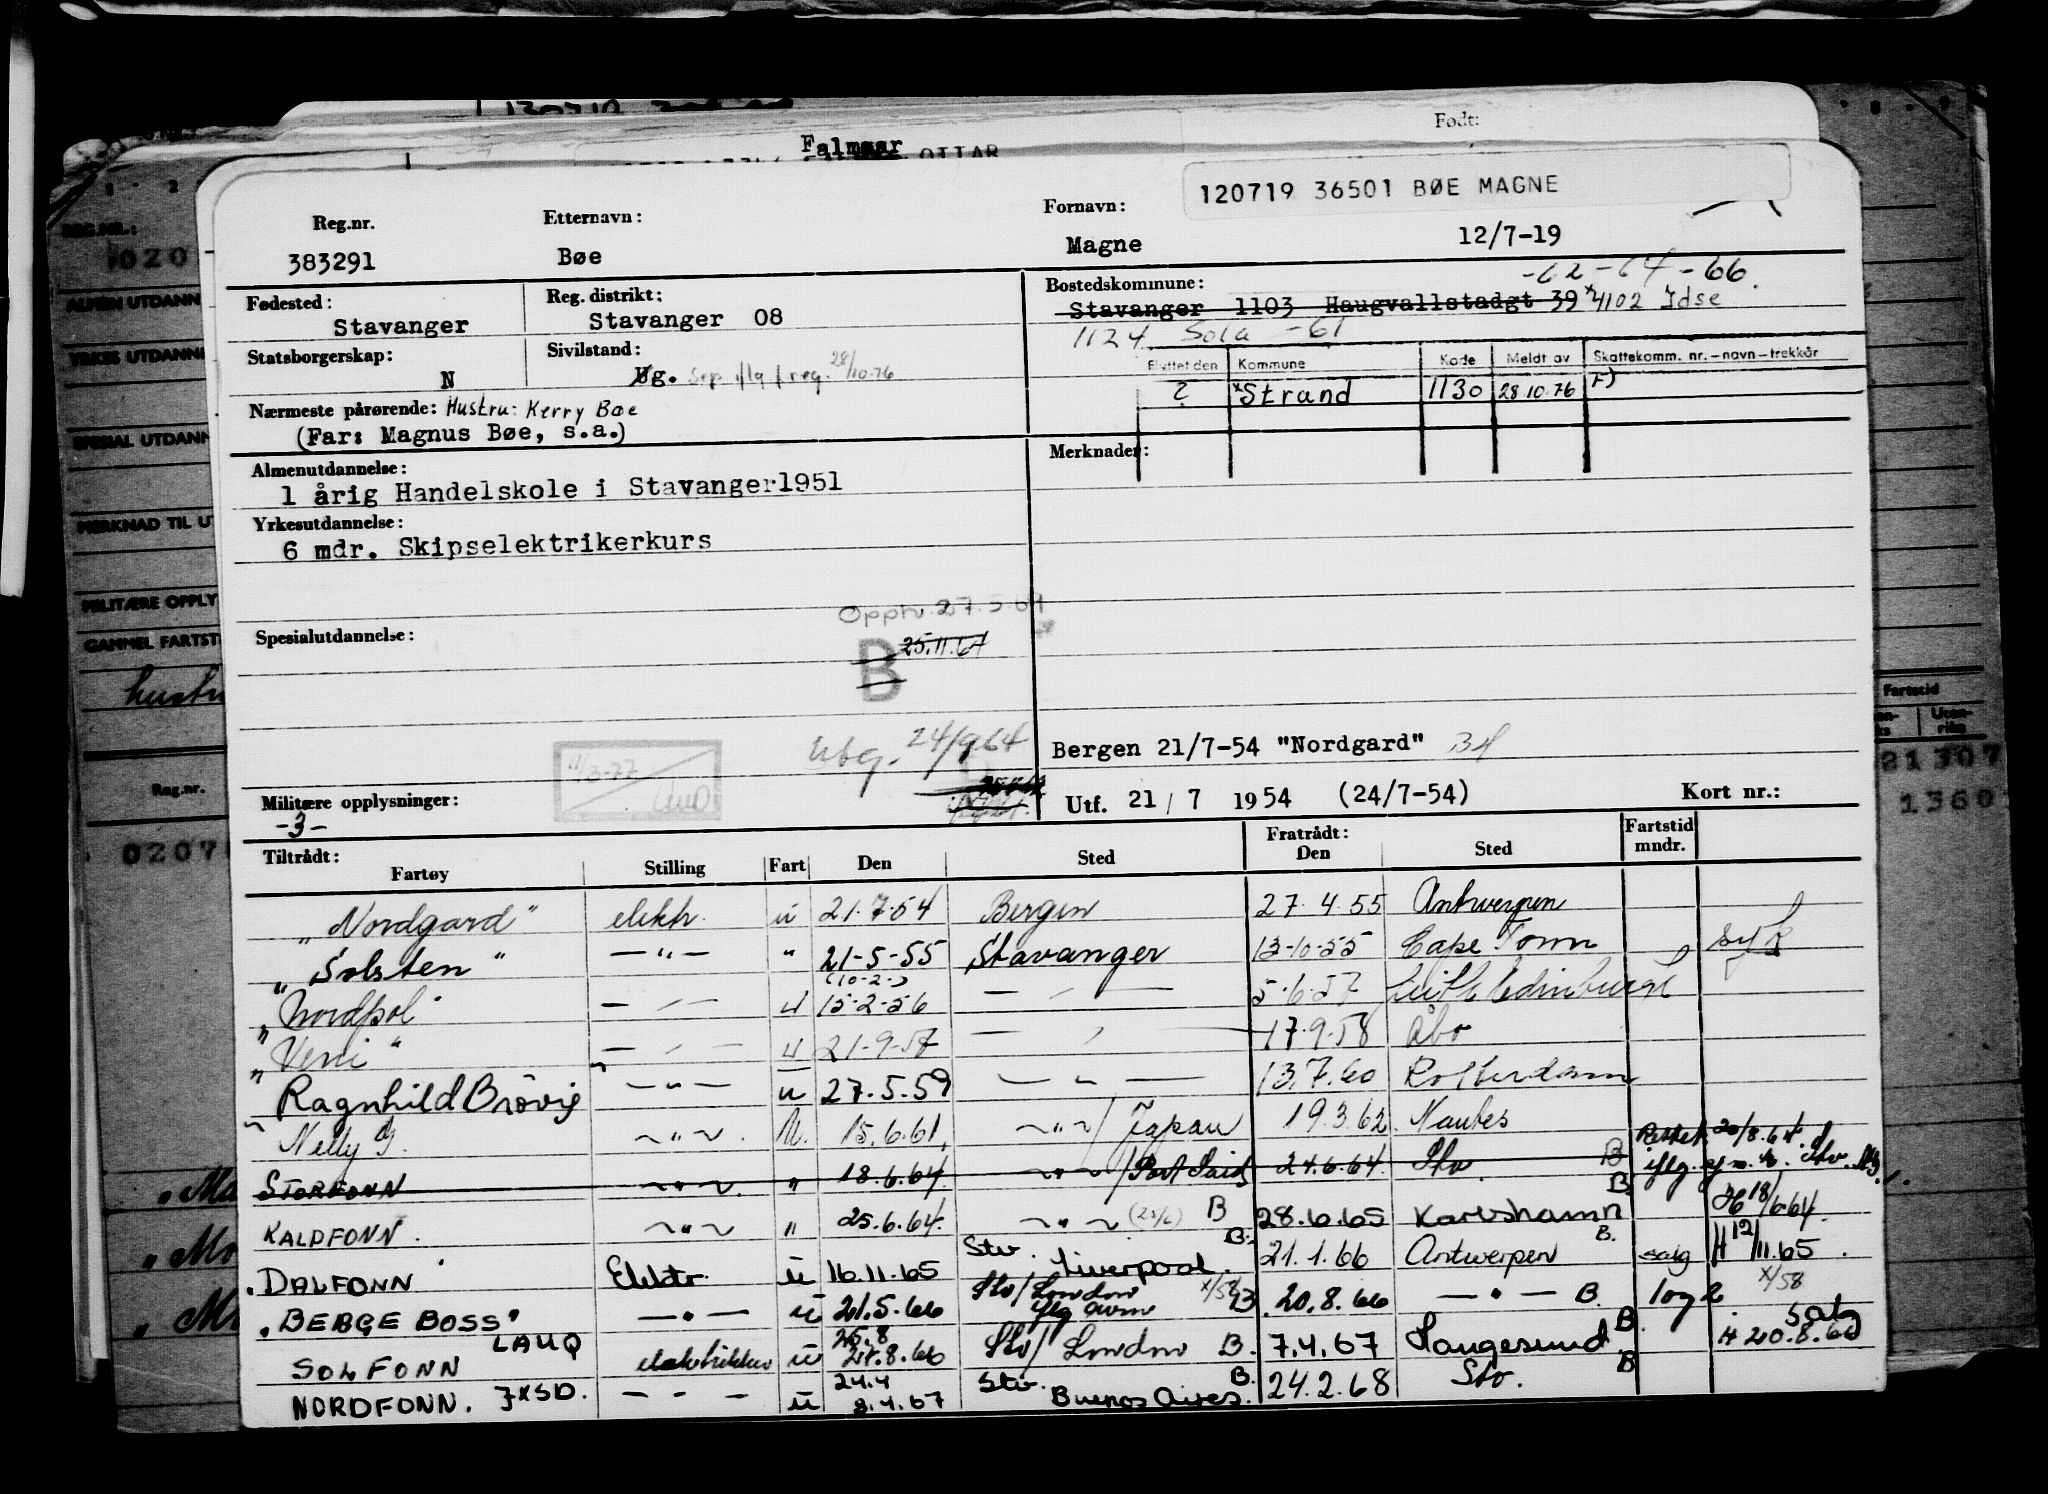 Falmaar
Født:
120719 36501 BØE MAGNE
Reg.nr. Etternavn: Fornavn:
383291 Bøe Magne 12/7-19
Fødested: Reg. distrikt: Bostedskommune: -62 -64 -66
Stavanger Stavanger 08 Stavanger 1103 Haugvallstadgt 39 4102 Idse
1124 Sola -61
Statsborgerskap: Sivilstand: Flyttet den Kommune Kode Meldt av Skattekomm. nr.-navn-trekkår
N Ug. Sep iflg f reg. 28/10.76 ? Strand 1130 28.10.76 F)
Nærmeste pårørende: Hustru: Kerry Bøe
(Far: Magnus Bøe, s.a.)
Almenutdannelse: Merknader:
1 årig Handelskole i Stavanger 1951
Yrkesutdannelse:
6 mdr. Skipselektrikerkurs
Spesialutdannelse:
B 25.11.64
Utg. 24/9 64
11/3-77
Bergen 21/7-54 "Nordgard"
Militære opplysninger: Utf. 21/7 1954 (24/7-54) Kort nr.:
-3-
Tiltrådt: Fratrådt: Fartstid mndr.
Fartøy Stilling Fart Den Sted Den Sted
"Nordgard" elektr. u 21.7.54 Bergen 27.4.55 Antwerpen
"Solsten" —"— " 21-5-55 Stavanger 13-10-55 Cape Town syk
(10-2-)
"Nordpol" — " — u 15-2-56 — " — 5.6.57 Leith Edinburgh
"Veni" — " — u 21-9-57 — " — 17.9.58 Åbo
Ragnhild Brövig —"— u 27.5.59 — " — 13.7.60 Rotterdam
Nelly —"— U. 15.6.61. —"—/Japan 19.3.62 Nantes
STORFONN —"— " 18.6.64. —"—/Port Said 24.6.64. Stv B
KALDFONN. —"— " 25.6.64. —"— (25/6) B 28.6.65 Karlshamn B. 18/6 64.
DALFONN Elektr. u 16.11.65 Stv. Liverpool. B. 21.1.66 Antwerpen B. salg H 12/11.65.
"BERGE BOSS" —"— u 21.5.66 Stv/London x/58 B 20.8.66 —"— B. log 2 x/58
SOLFONN LAUQ elektriker u 25.8 21.8.66 Stv/London B. 7.4.67 Haugesund B salg H 20.8.66
NORDFONN. JXSD. — " — u 24.4 8.4.67 Stv. Buenos Aires. B. 24.2.68 Stv. B